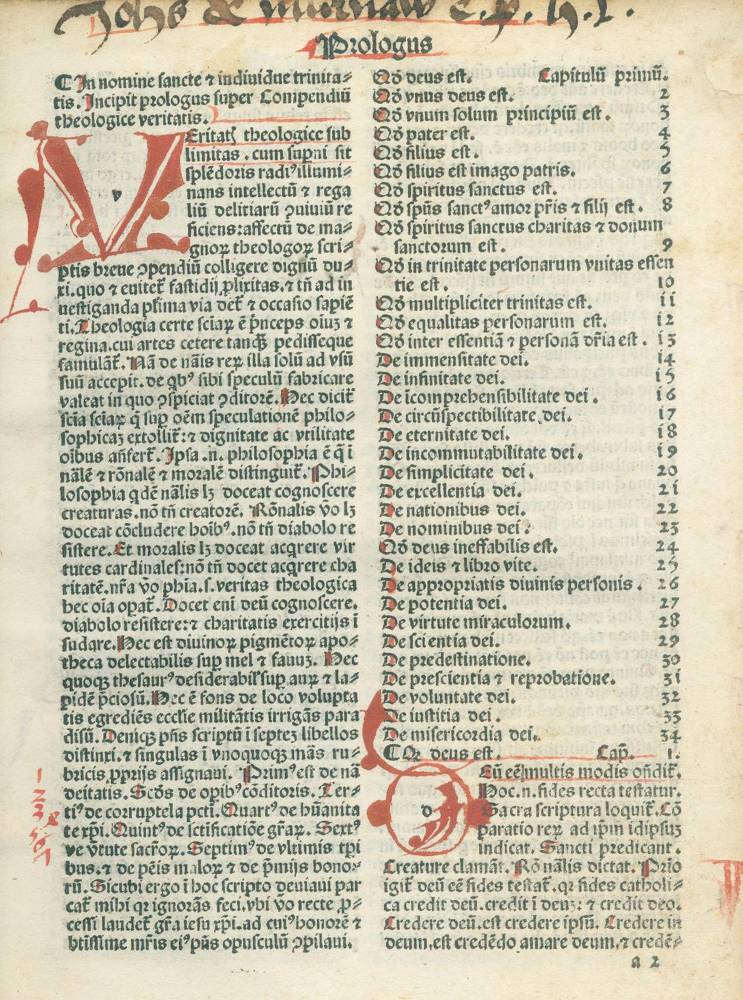 Prologus
¶ In nomine sancte ⁊ indiuidue trinita⸗
tis. Incipit prologus super Compendiū
theologice veritatis.
VEritatꝭ theologice sub
limitas . cum supni sit
splēdoris radiꝰ illumi⸗
nans intellectū ⁊ rega
liū delitiarū ꝯuiuiū re
ficiens: affectū de ma⸗
gnoꝝ theologoꝝ scri⸗
ptis breue ꝯpendiū colligere dignū du⸗
xi. quo ⁊ euitet᷑ fastidij ꝓlixitas. ⁊ tn̄ ad in
uestiganda plima via det᷑ ⁊ occasio sapiē
ti. Theologia certe sciaꝝ ē p̄nceps oīuꝫ ⁊
regina. cui artes cetere tanqꝫ pedisseque
famulāt᷑. Nā de nāis reꝝ illa solū ad vsū
suū accepit. de qbꝰ sibi speculū fabricare
valeat in quo ꝯspiciat ꝯditorē. Hec dicit᷑
scīa sciaꝝ q̄ sup oēm speculationē philo⸗
sophicaꝫ extollit᷑: ⁊ dignitate ac vtilitate
oībus anfert᷑. Ipsa .n. philosophia ē q̄ ī
nālē ⁊ rōnalē ⁊ moralē distinguit᷑. Phi⸗
losophia qdē nālis lꝫ doceat cognoscere
creaturas. nō tn̄ creatorē. Rōnalis ꝟo lꝫ
doceat cōcludere hoībꝰ. nō tn̄ diabolo re
sistere. Et moralis lꝫ doceat acqrere vir
tutes cardinales: nō tn̄ docet acqrere cha
ritatē. nr̄a ꝟo phīa. s. veritas theologica
hec oīa opat᷑. Docet enī deū cognoscere.
diabolo resistere: ⁊ charitatis exercitijs ī
sudare. Hec est diuinoꝝ pigmētoꝝ apo⸗
theca delectabilis sup mel ⁊ fauuꝫ. Hec
quoqꝫ thesaurꝰ desiderabilꝭ sup auꝝ ⁊ la⸗
pidē p̄ciosū. Hec ē fons de loco volupta
tis egrediēs ecclīe militātis irrigās para
disū. Deniqꝫ pn̄s scriptū ī septeꝫ libellos
distinxi. ⁊ singulas ī vnoquoqꝫ mās ru⸗
bricis ꝓprijs assignaui. Primꝰ est de nā
deitatis. Scd̄s de opibꝰ cōditoris. Ter⸗
tiꝰ de corruptela pcti. Quartꝰ de hūanita
te xp̄i. Quintꝰ de sctificatiōe gr̄aꝝ. Sextꝰ
ve ꝟtute sacr̄oꝝ. Septimꝰ de vltimis tpi
bus. ⁊ de pēis maloꝝ ⁊ de p̄mijs bono⸗
rū. Sicubi ergo ī hoc scripto deuiaui par
cat᷑ mihi qꝛ ignorās feci. vbi ꝟo recte ꝓ⸗
cessi laudet᷑ gr̄a iesu xp̄i. ad cuiꝰ honorē ⁊
btīssime mr̄is eiꝰ pn̄s opusculū ꝯpilaui.
Qd̄ deus est. Capitulū primū.
Qd̄ vnus deus est. 2
Qd̄ vnum solum principiū est. 3
Qd̄ pater est. 4
Qd̄ filius est. 5
Qd̄ filius est imago patris. 6
Qd̄ spiritus sanctus est. 7
Qd̄ spūs sanctꝰ amor pr̄is ⁊ filij est. 8
Qd̄ spiritus sanctus charitas ⁊ donum
sanctorum est. 9
Qd̄ in trinitate personarum vnitas essen
tie est. 10
Qd̄ multipliciter trinitas est. 11
Qd̄ equalitas personarum est. 12
Qd̄ inter essentiā ⁊ personā dr̄ia est. 13
De immensitate dei. 14
De infinitate dei. 15
De īcomprehensibilitate dei. 16
De circūspectibilitate dei. 17
De eternitate dei. 18
De incommutabilitate dei. 19
De simplicitate dei. 20
De excellentia dei. 21
De nationibus dei. 22
De nominibus dei. 23
Qd̄ deus ineffabilis est. 24
De ideis ⁊ libro vite. 25
De appropriatis diuinis personis. 26
De potentia dei. 27
De virtute miraculorum. 28
De scientia dei. 29
De predestinatione. 30
De prescientia ⁊ reprobatione. 31
De voluntate dei. 32
De iustitia dei. 33
De misericordia dei. 34
¶ Qꝛ deus est. Cap. 1.
dEū eē multis modis ondit᷑.
Hoc .n. fides recta testatur.
Sacra scriptura loquit᷑. Cō
paratio reꝝ ad ip̄m idipsuꝫ
indicat. Sancti predicant.
Creature clamāt. Rō nālis dictat. Prīo
igit᷑ deū eē fides testat᷑. qꝛ fides catholi⸗
ca credit deū. credit ī deuꝫ: ⁊ credit deo.
Credere deū. est credere ipsū. Credere in
deum, est credēdo amare deum, ⁊ credē⸗
a 2